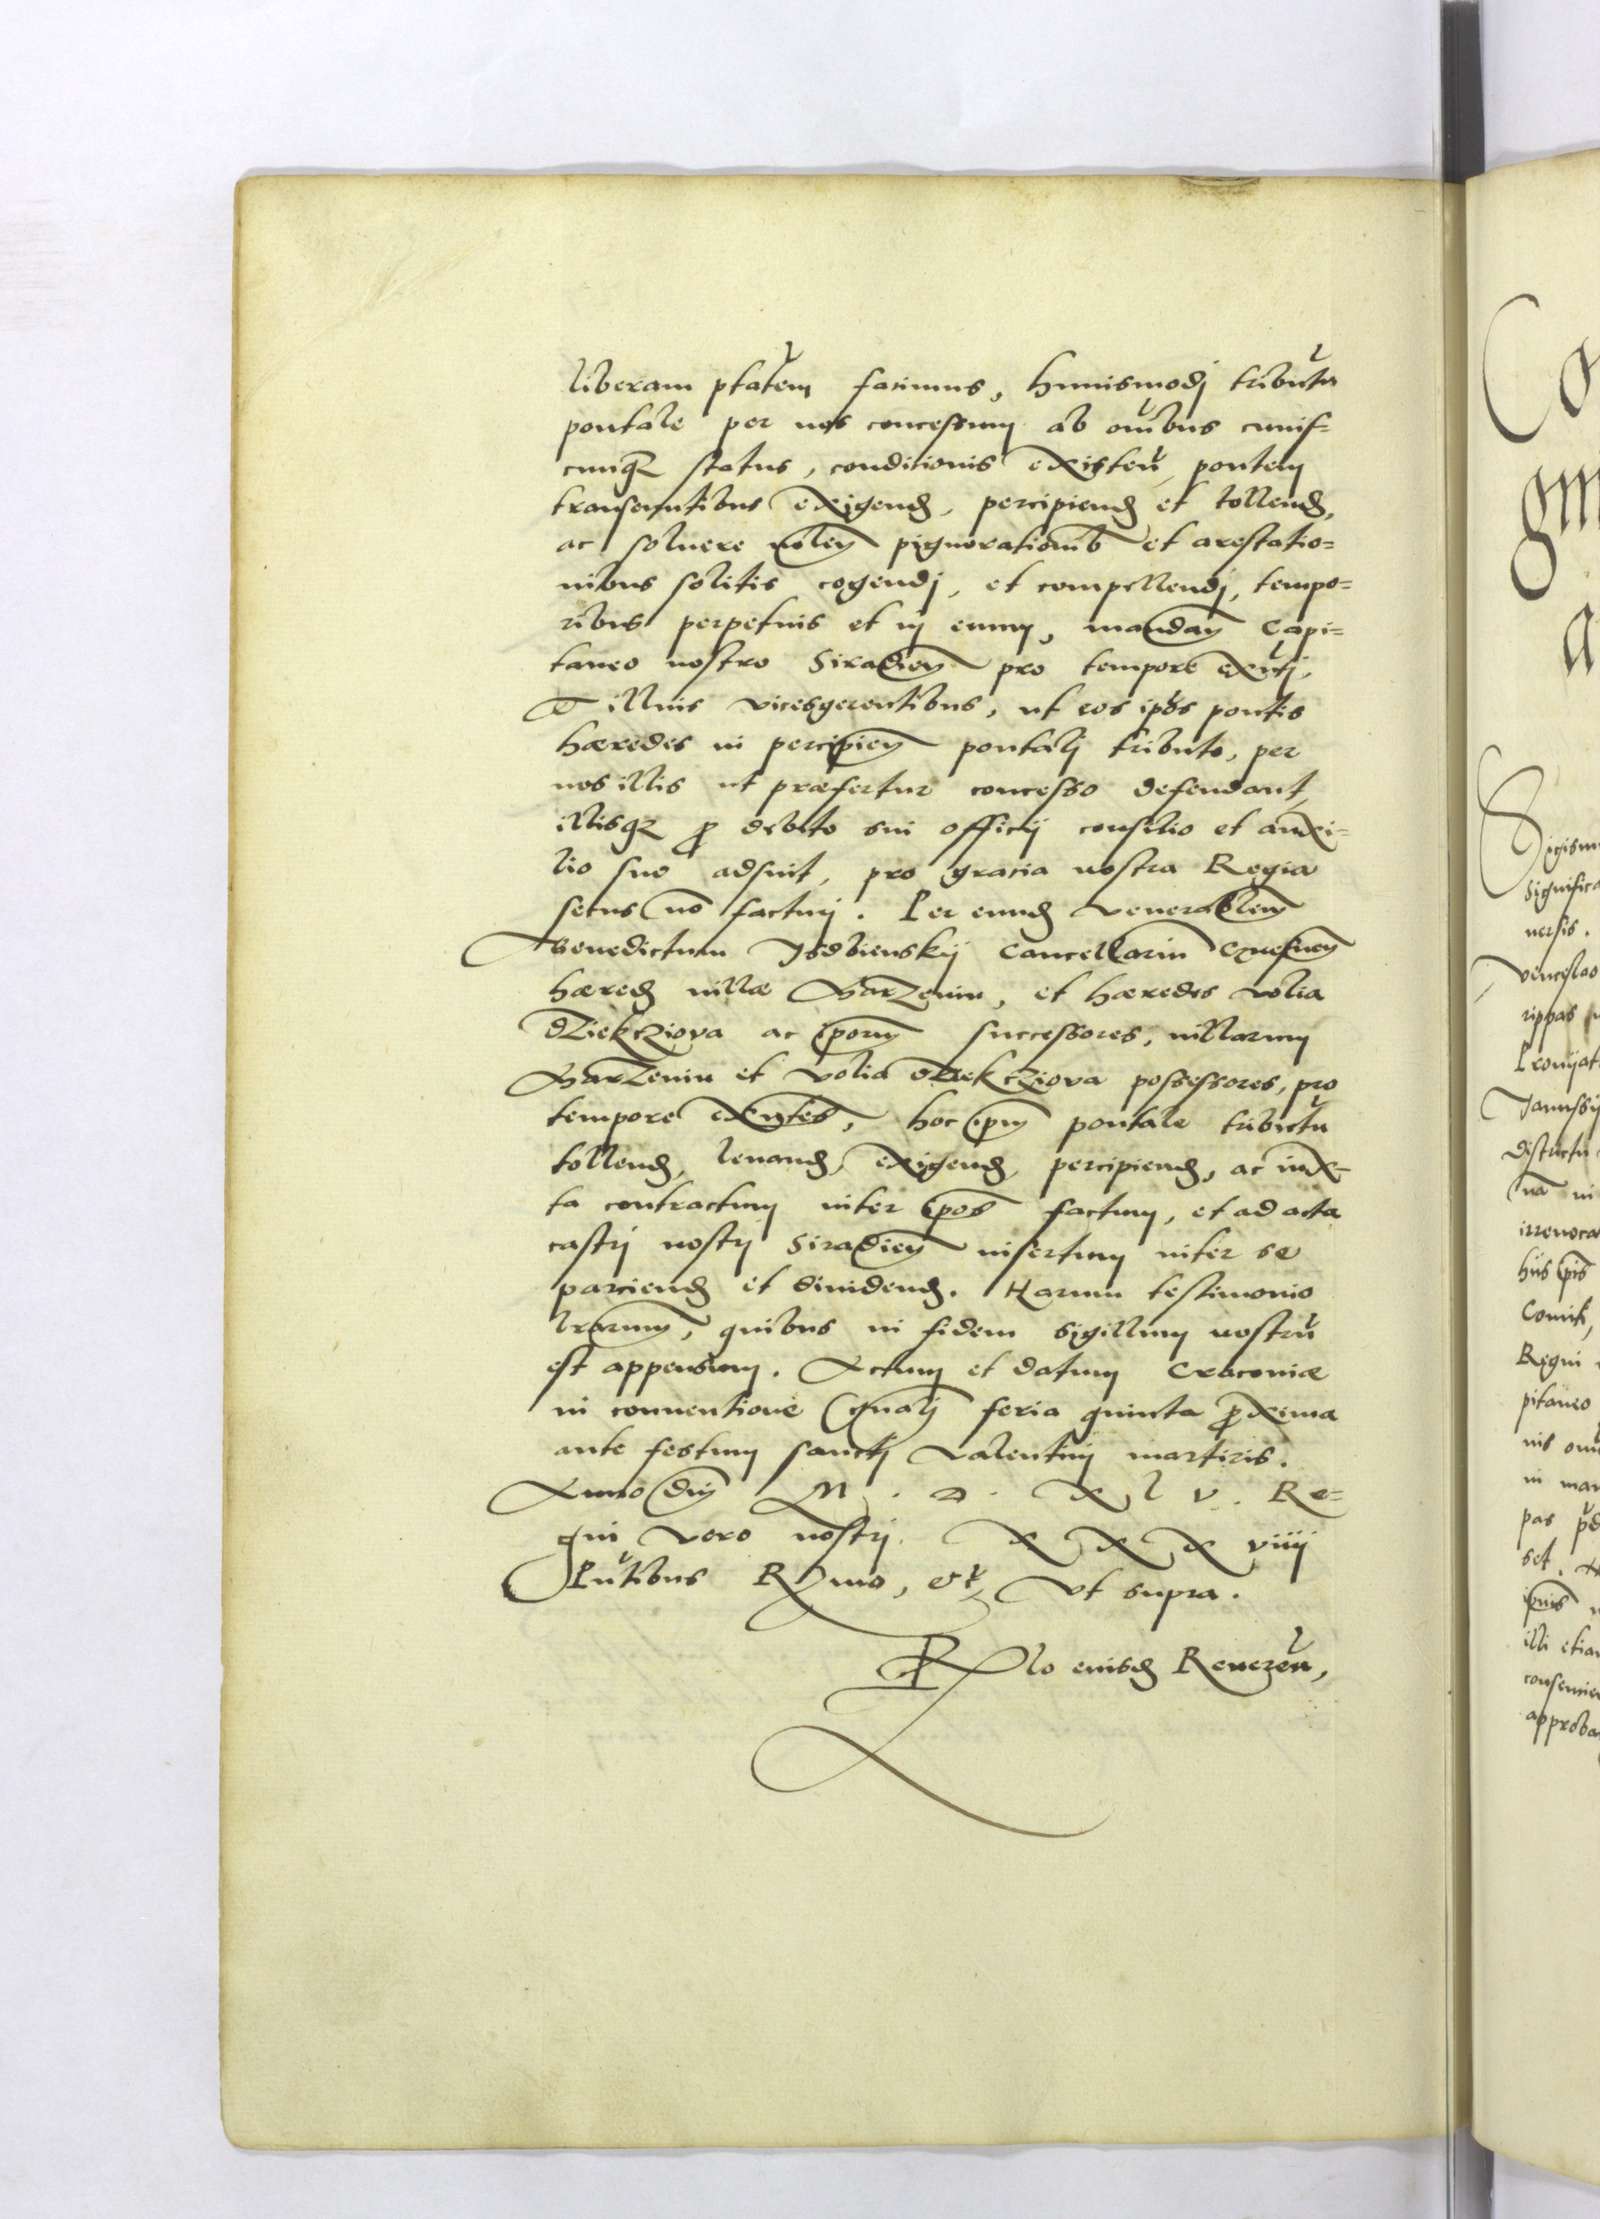 liberam ptatem facimus, huiusmodj tributū
pontale per nos concessum ab omībus cuius=
cunqꝫ status, conditionis existeñ pontem
transeuntibus exigend, percipiend et tollend,
ac soluere noleñ pignorationib et arestatio=
nibus solitis cogendj, et compellendj, tempo=
ribus perpetuis et in euum, mandañ Capi=
taneo nostro Siradieñ pro tempore exn̄tj,
& illius vicesgerentibus, ut eos ip̄os pontis
hæredes in percipieñ pontalj tributo, per
nos illis ut præfertur concesso defendant,
illisqꝫ ꝓ debito sui officij consilio et auxi=
lio suo adsint, pro gratia nostra Regia
secus nō facturj. Per eund venerablem
Benedictum Jsdbienskij Cancellariū Gnesneñ
hæred villæ Barzenin, et hæredes volia
dziekcziova ac ip̄orum successores, villarum
Barzenin et volia dziekcziova possessores, pro
tempore exn̄tes, hoc ip̄m pontale tributū
tollend, leuand, exigend, percipiend, ac iux=
ta contractum inter ip̄os factum, et ad acta
castrj nostrj Siradieñ insertum inter se
parciend et diuidend. Harum testimonio
lrarum, quibus in fidem sigillum nostrū
est appensum. Actum et datum Cracouiæ
in conuentione gnalj feria quinta ꝓxima
ante festum sanctj Valentinj martiris.
Anno dnj M. D. X L V. Re=
gni vero nostrj. X X X viiij
Pn̄tibus R mo, etc, Vt supra.
R lo eiusd Reuereñ,